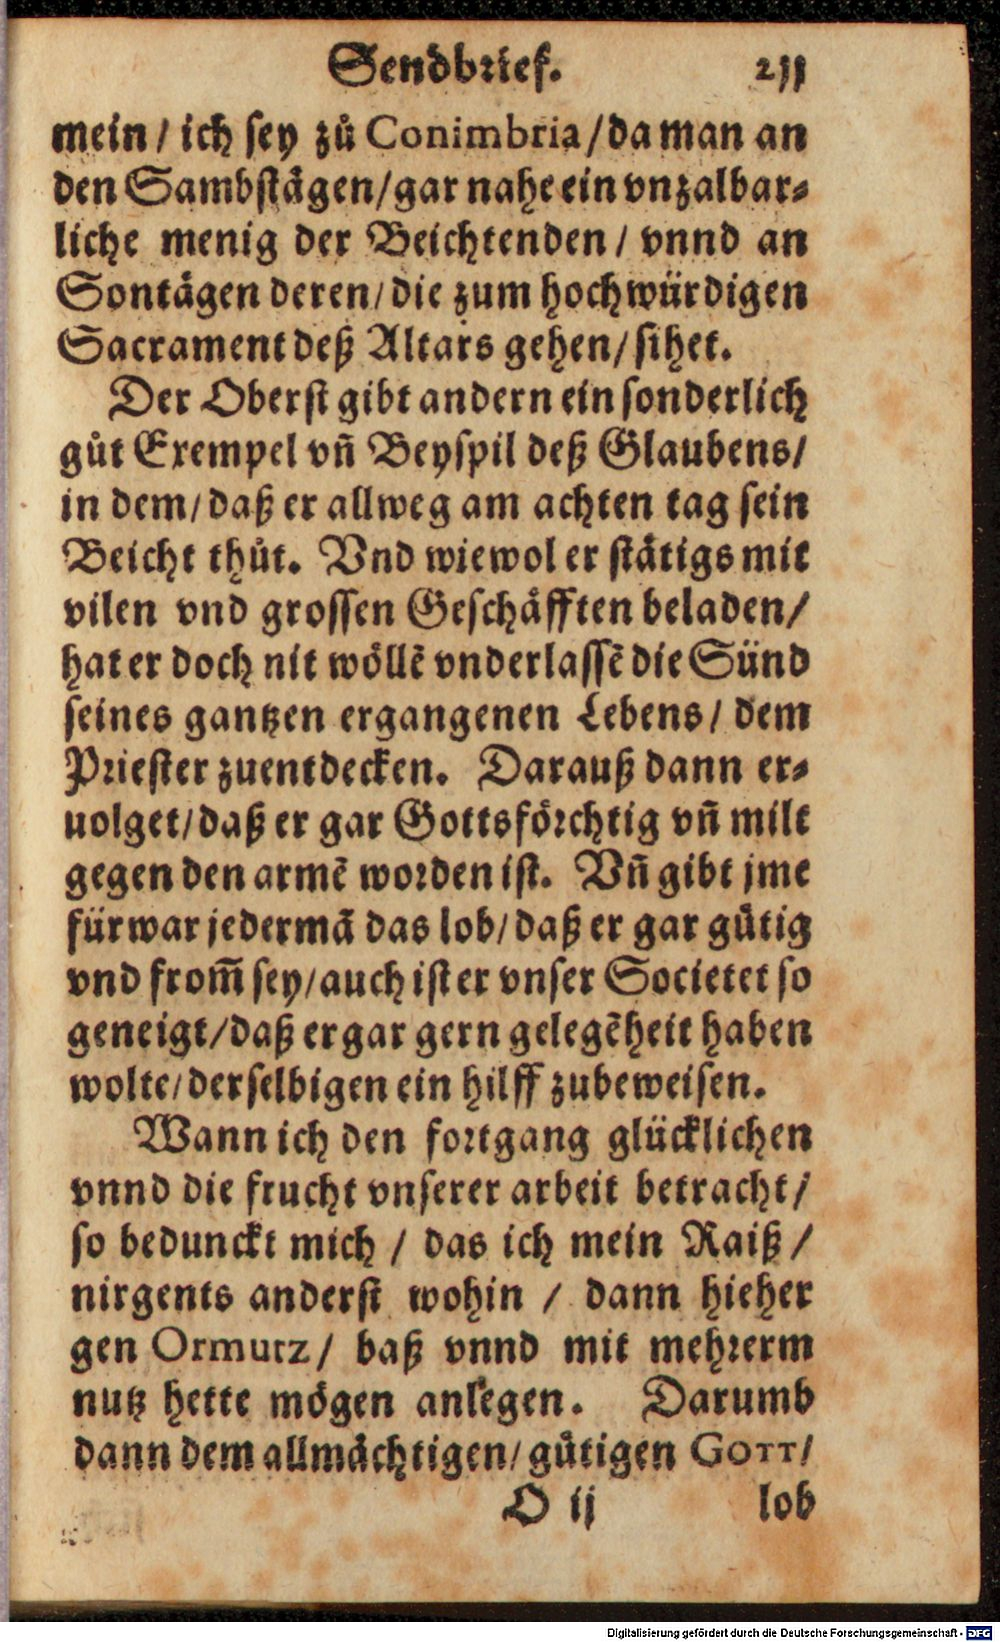 Sendbrief. 211
mein / ich sey zů Conimbria / da man an
den Sambstägen / gar nahe ein vnzalbar⸗
liche menig der Beichtenden / vnnd an
Sontägen deren / die zum hochwürdigen
Sacrament deß Altars gehen / sihet.
Der Oberst gibt andern ein sonderlich
gůt Exempel vn̄ Beyspil deß Glaubens /
in dem / daß er allweg am achten tag sein
Beicht thůt. Vnd wiewol er stätigs mit
vilen vnd grossen Geschäfften beladen /
hat er doch nit wöllē vnderlassē die Sünd
seines gantzen ergangenen Lebens / dem
Priester zuentdecken. Darauß dann er⸗
uolget / daß er gar Gottsförchtig vn̄ milt
gegen den armē worden ist. Vn̄ gibt jme
fürwar jedermā das lob / daß er gar gütig
vnd from̄ sey / auch ist er vnser Societet so
geneigt / daß er gar gern gelegēheit haben
wolte / derselbigen ein hilff zubeweisen.
Wann ich den fortgang glücklichen
vnnd die frucht vnserer arbeit betracht /
so bedunckt mich / das ich mein Raiß /
nirgents anderst wohin / dann hieher
gen Ormutz / baß vnnd mit mehrerm
nutz hette mögen anlegen. Darumb
dann dem allmächtigen / gütigen GOTT /
O ij lob
Digitalisierung gefördert durch die Deutsche Forschungsgemeinschaft - DFG